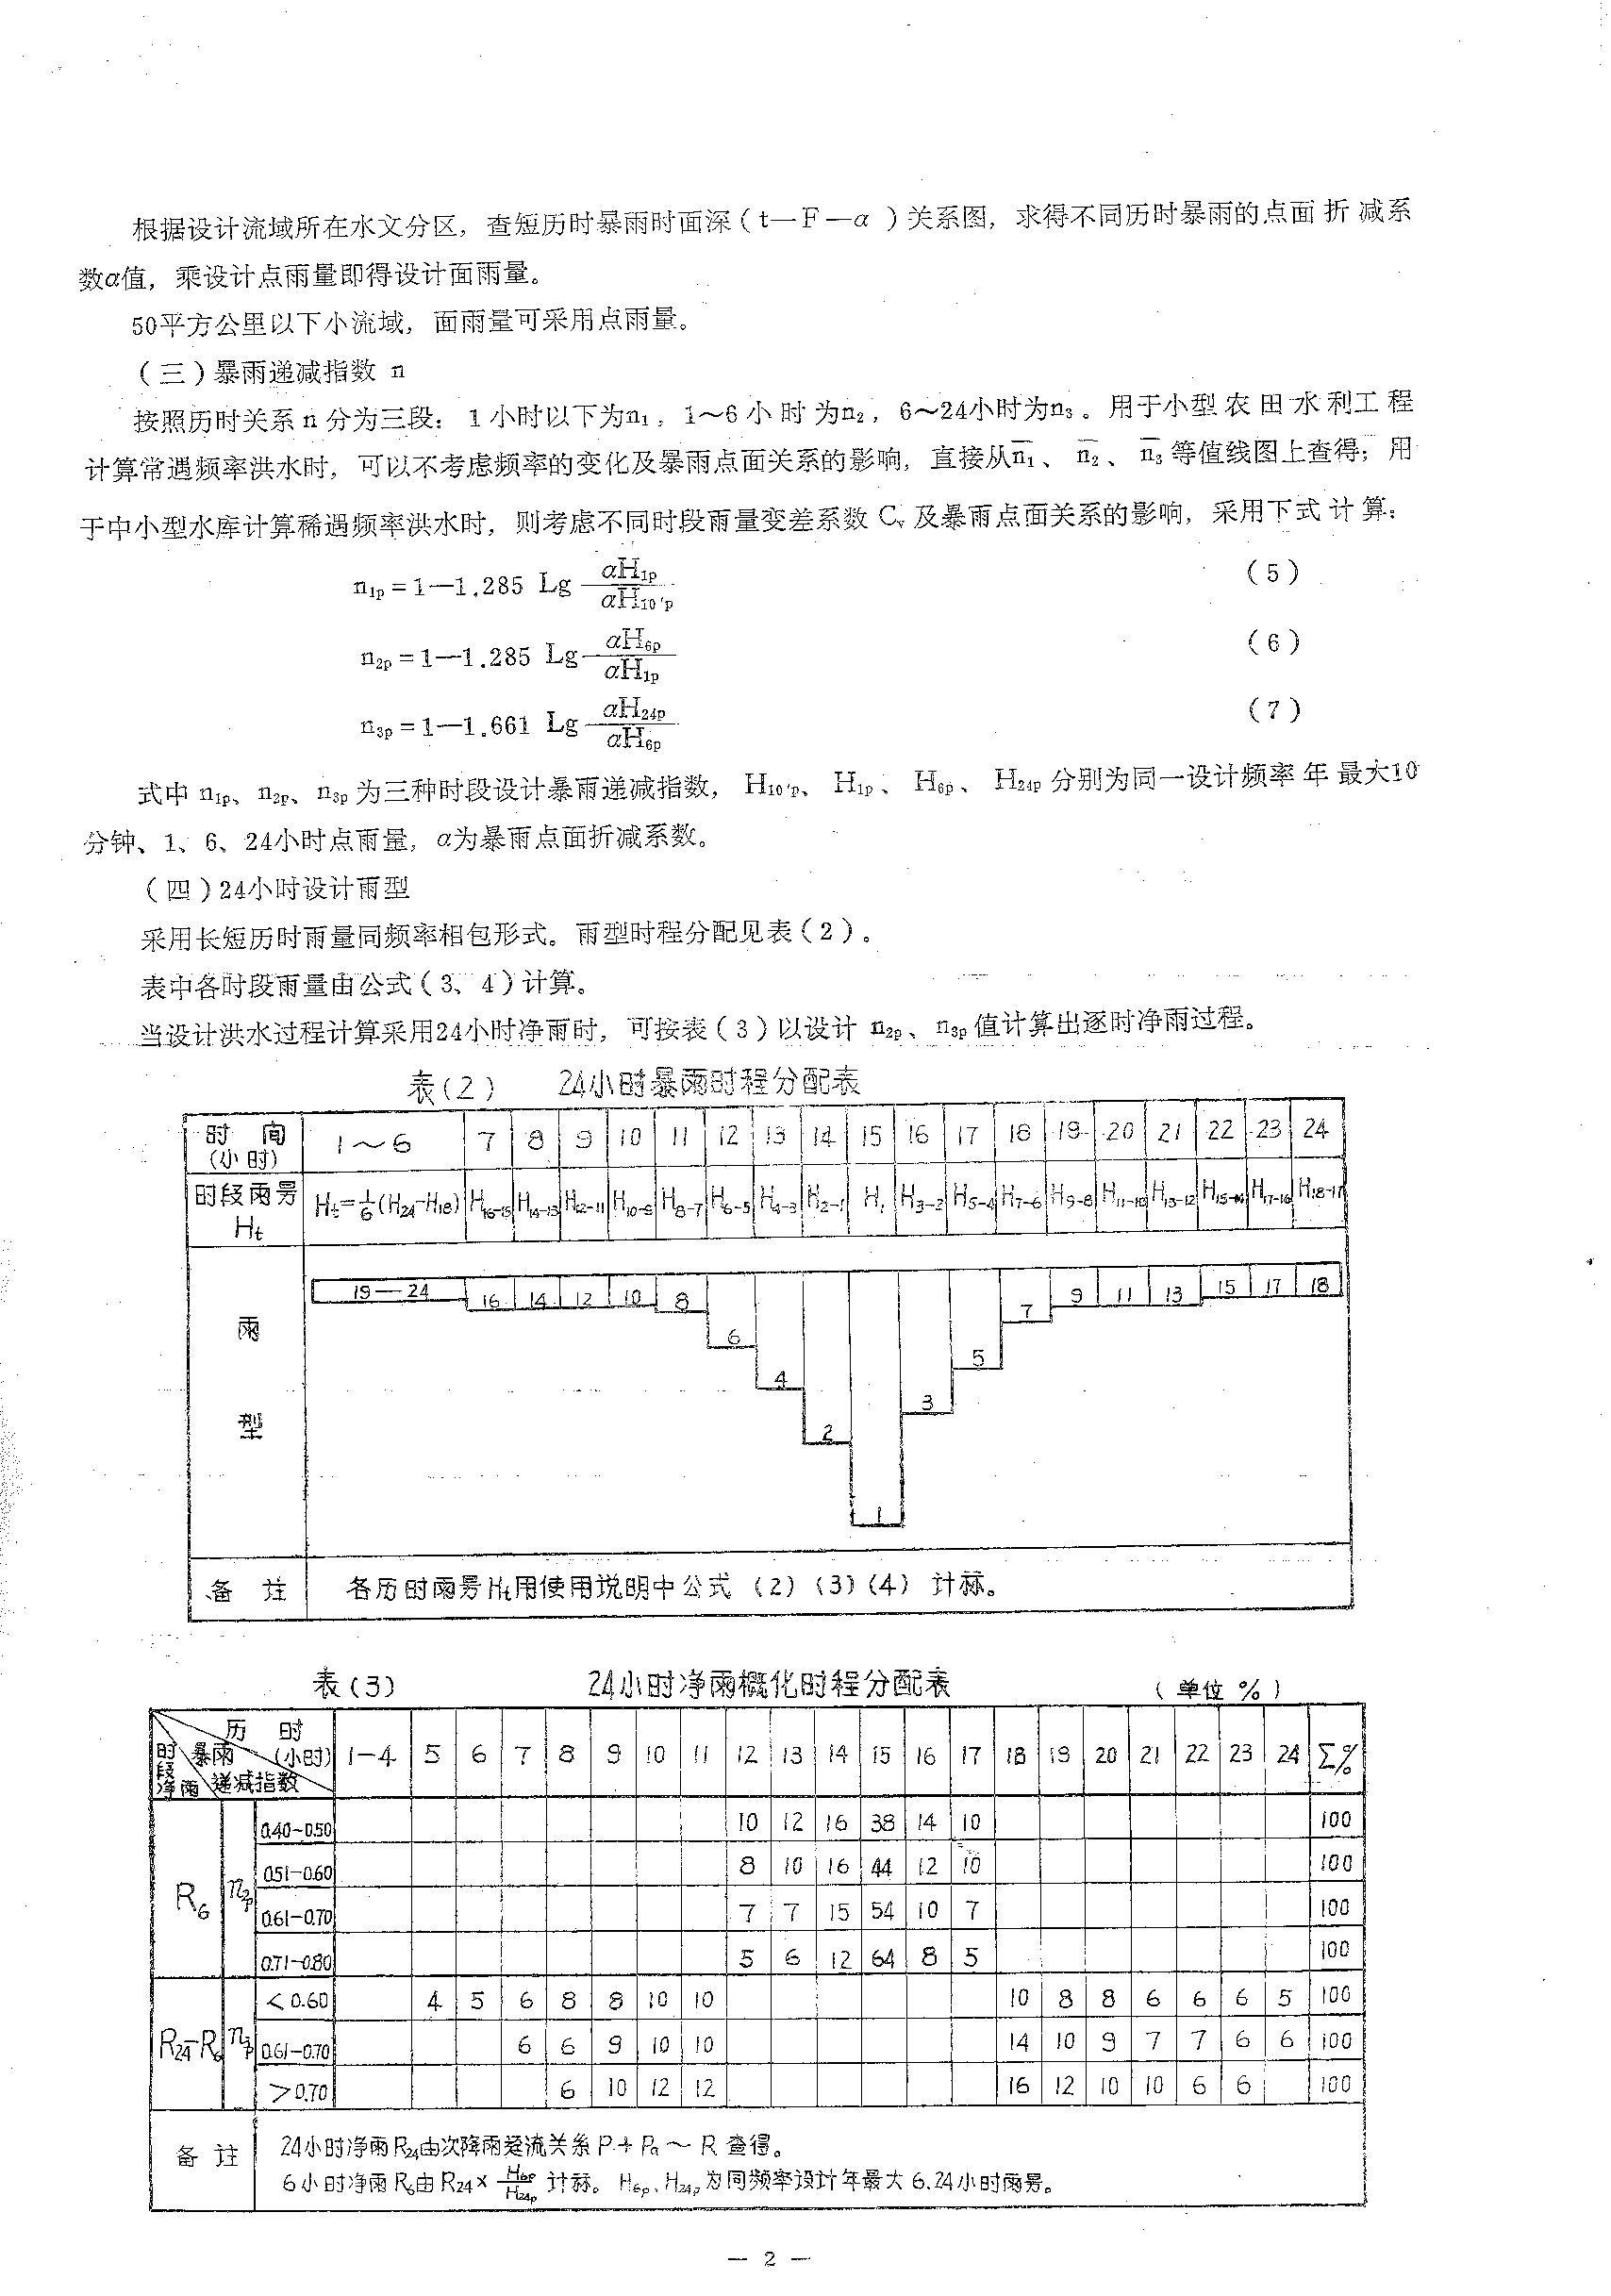 根据设计流域所在水文分区，查短历时暴雨时面深（t—F—α）关系图，求得不同历时暴雨的点面折减系
数α值，乘设计点雨量即得设计面雨量。
50平方公里以下小流域，面雨量可采用点雨量。
（三）暴雨递减指数 n
按照历时关系n分为三段：1小时以下为n₁，1～6小时为n₂，6～24小时为n₃。用于小型农田水利工程
计算常遇频率洪水时，可以不考虑频率的变化及暴雨点面关系的影响，直接从n̄₁、n̄₂、n̄₃等值线图上查得；用
于中小型水库计算稀遇频率洪水时，则考虑不同时段雨量变差系数 Cᵥ 及暴雨点面关系的影响，采用下式计算：
n1p = 1—1.285 Lg αH1p / αH10′p （5）
n2p = 1—1.285 Lg αH6p / αH1p （6）
n3p = 1—1.661 Lg αH24p / αH6p （7）
式中 n1p、n2p、n3p 为三种时段设计暴雨递减指数，H10′p、H1p、H6p、H24p 分别为同一设计频率年最大10
分钟、1、6、24小时点雨量，α为暴雨点面折减系数。
（四）24小时设计雨型
采用长短历时雨量同频率相包形式。雨型时程分配见表（2）。
表中各时段雨量由公式（3、4）计算。
当设计洪水过程计算采用24小时净雨时，可按表（3）以设计 n2p、n3p 值计算出逐时净雨过程。
表(2) 24小时暴雨时程分配表
时间(小时) 1～6 7 8 9 10 11 12 13 14 15 16 17 18 19 20 21 22 23 24
时段雨量Ht Ht=1/6(H24-H18) H16-15 H14-13 H12-11 H10-9 H8-7 H6-5 H4-3 H2-1 H1 H3-2 H5-4 H7-6 H9-8 H11-10 H13-12 H15-14 H17-16 H18-17
雨型 19—24 16 14 12 10 8 6 4 2 1 3 5 7 9 11 13 15 17 18
备注 各历时雨量Ht用使用说明中公式 (2)(3)(4) 计算。
表(3) 24小时净雨概化时程分配表 （单位 %）
时段净雨 暴雨递减指数 历时(小时) 1-4 5 6 7 8 9 10 11 12 13 14 15 16 17 18 19 20 21 22 23 24 Σ%
R6 n2p 0.40~0.50 10 12 16 38 14 10 100
0.51-0.60 8 10 16 44 12 10 100
0.61-0.70 7 7 15 54 10 7 100
0.71-0.80 5 6 12 64 8 5 100
R24-R6 n3p <0.60 4 5 6 8 8 10 10 10 8 8 6 6 6 5 100
0.61-0.70 6 6 9 10 10 14 10 9 7 7 6 6 100
>0.70 6 10 12 12 16 12 10 10 6 6 100
备注 24小时净雨R24由次降雨迳流关系P+Pa～R 查得。
6小时净雨R6由R24×H6p/H24p 计算。H6p、H24p为同频率设计年最大6.24小时雨量。
— 2 —